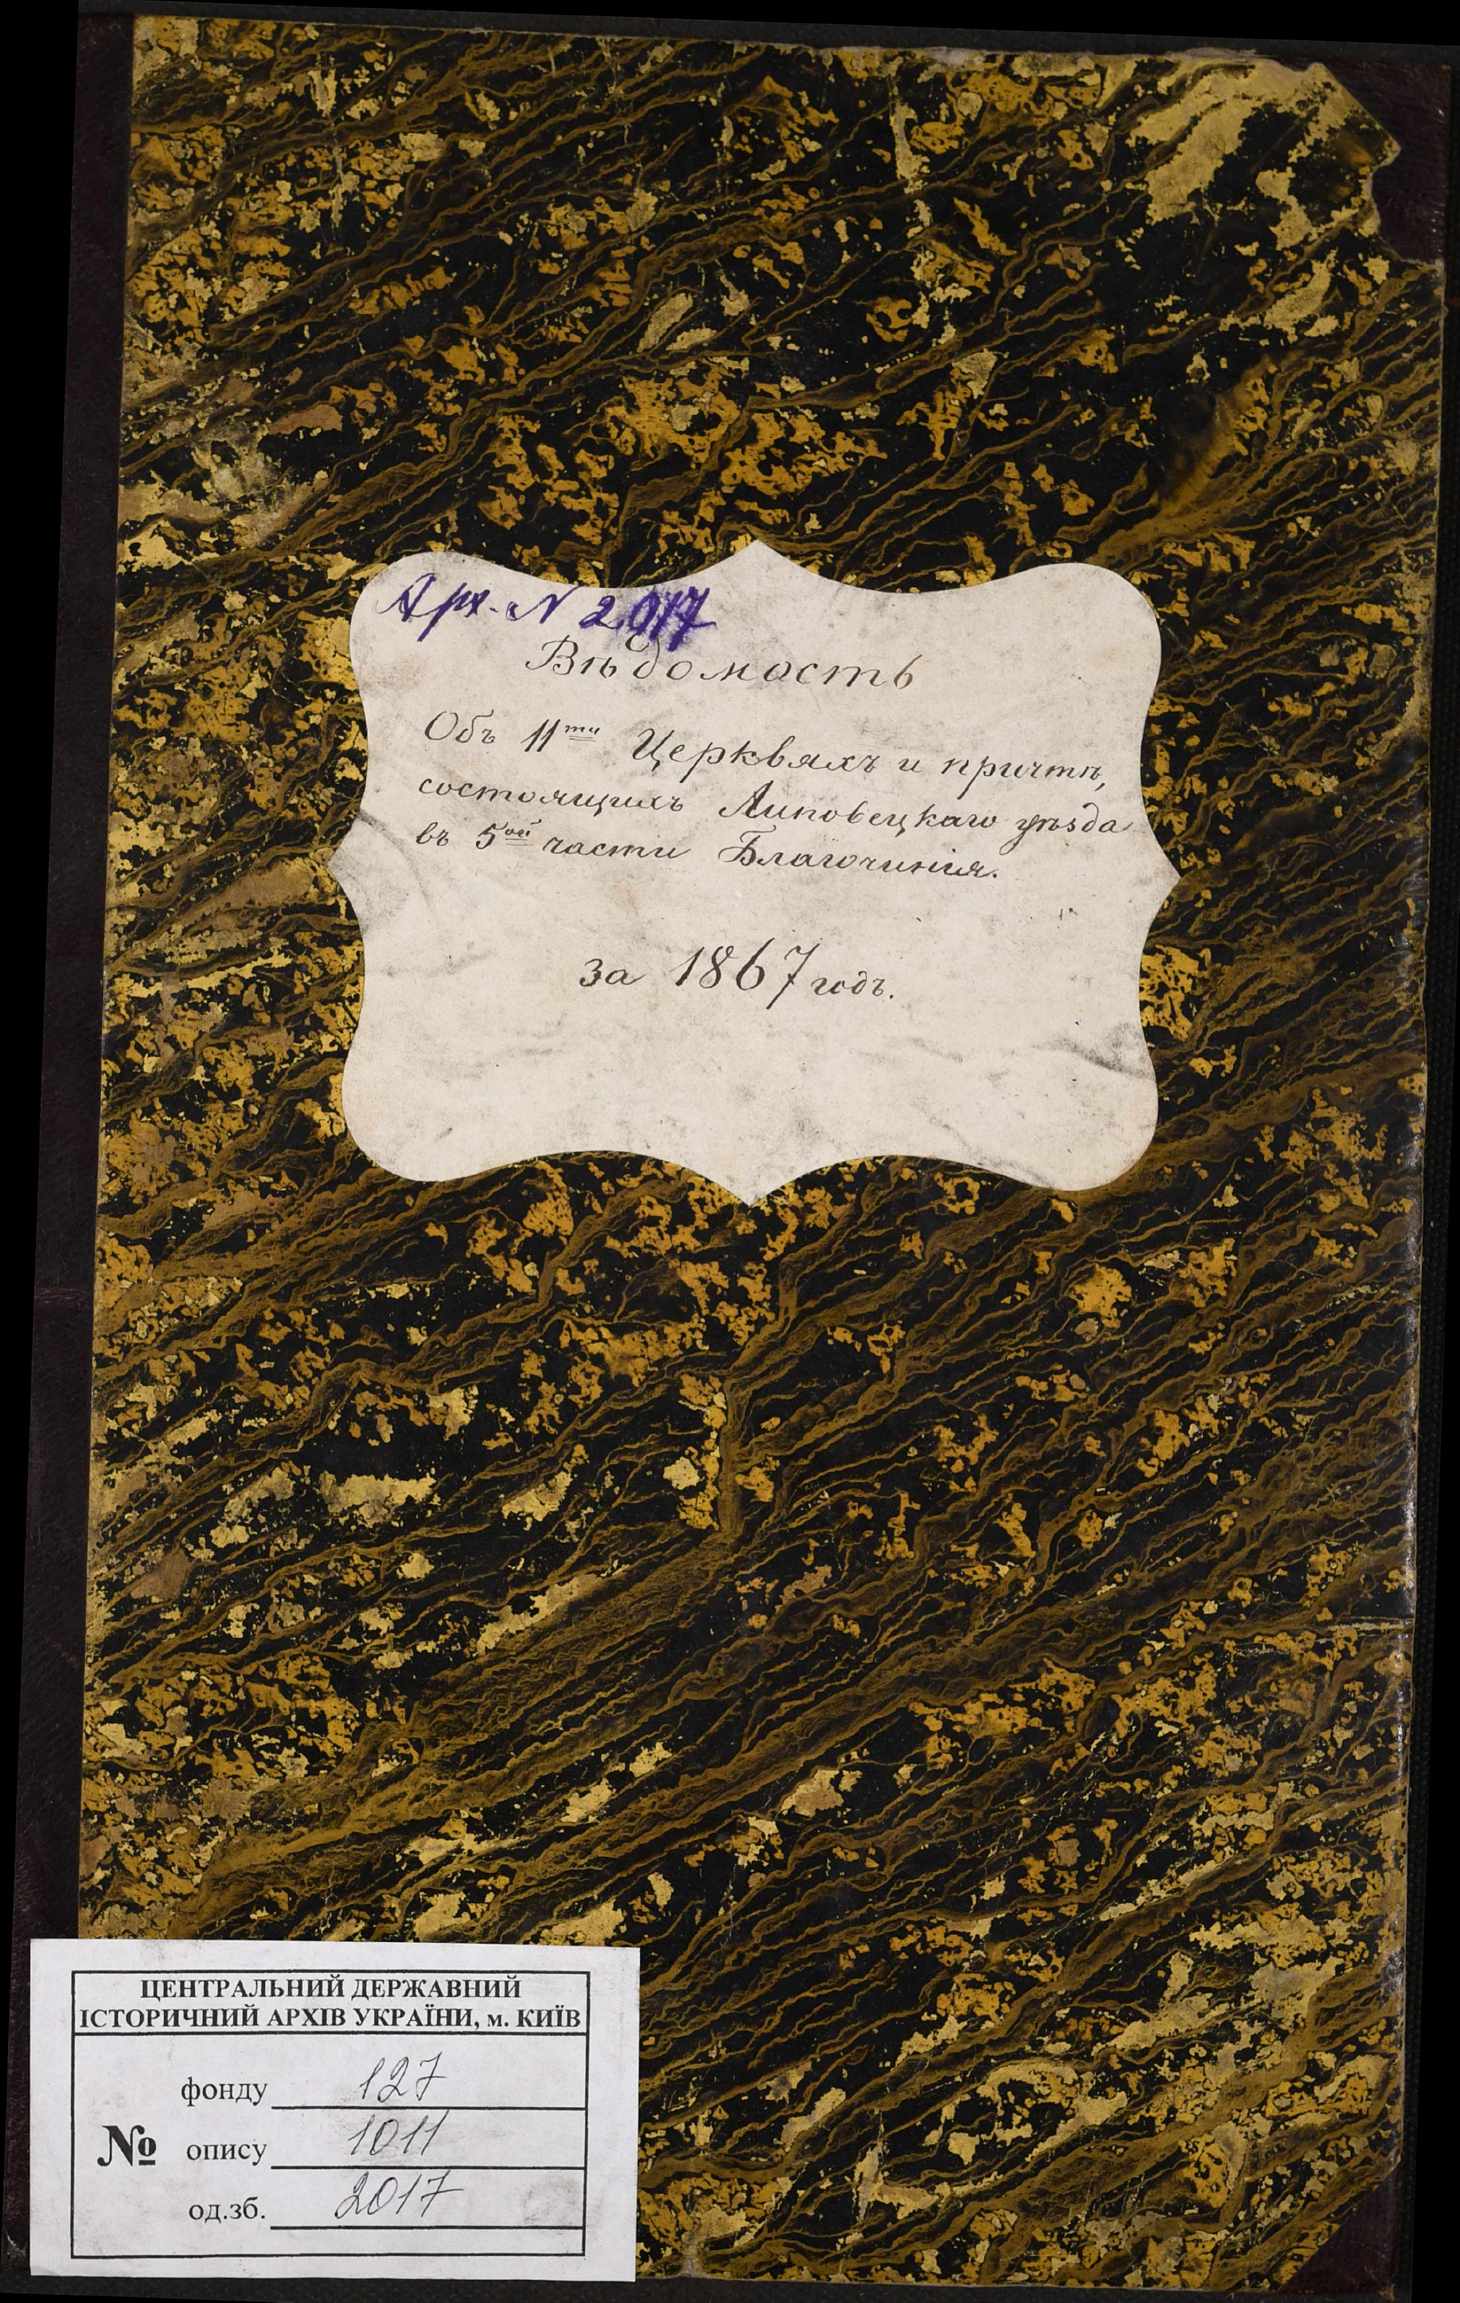 Арх. N 2017
Вѣдомость
Объ 11ти Церквяхъ и причтѣ,
состоящихъ Липовецкаго уѣзда
въ 5ой части Благочинія.
за 1867 годъ.
ЦЕНТРАЛЬНИЙ ДЕРЖАВНИЙ
ІСТОРИЧНИЙ АРХІВ УКРАЇНИ, м. КИЇВ
фонду 127
№ опису 1011
од.зб. 2017